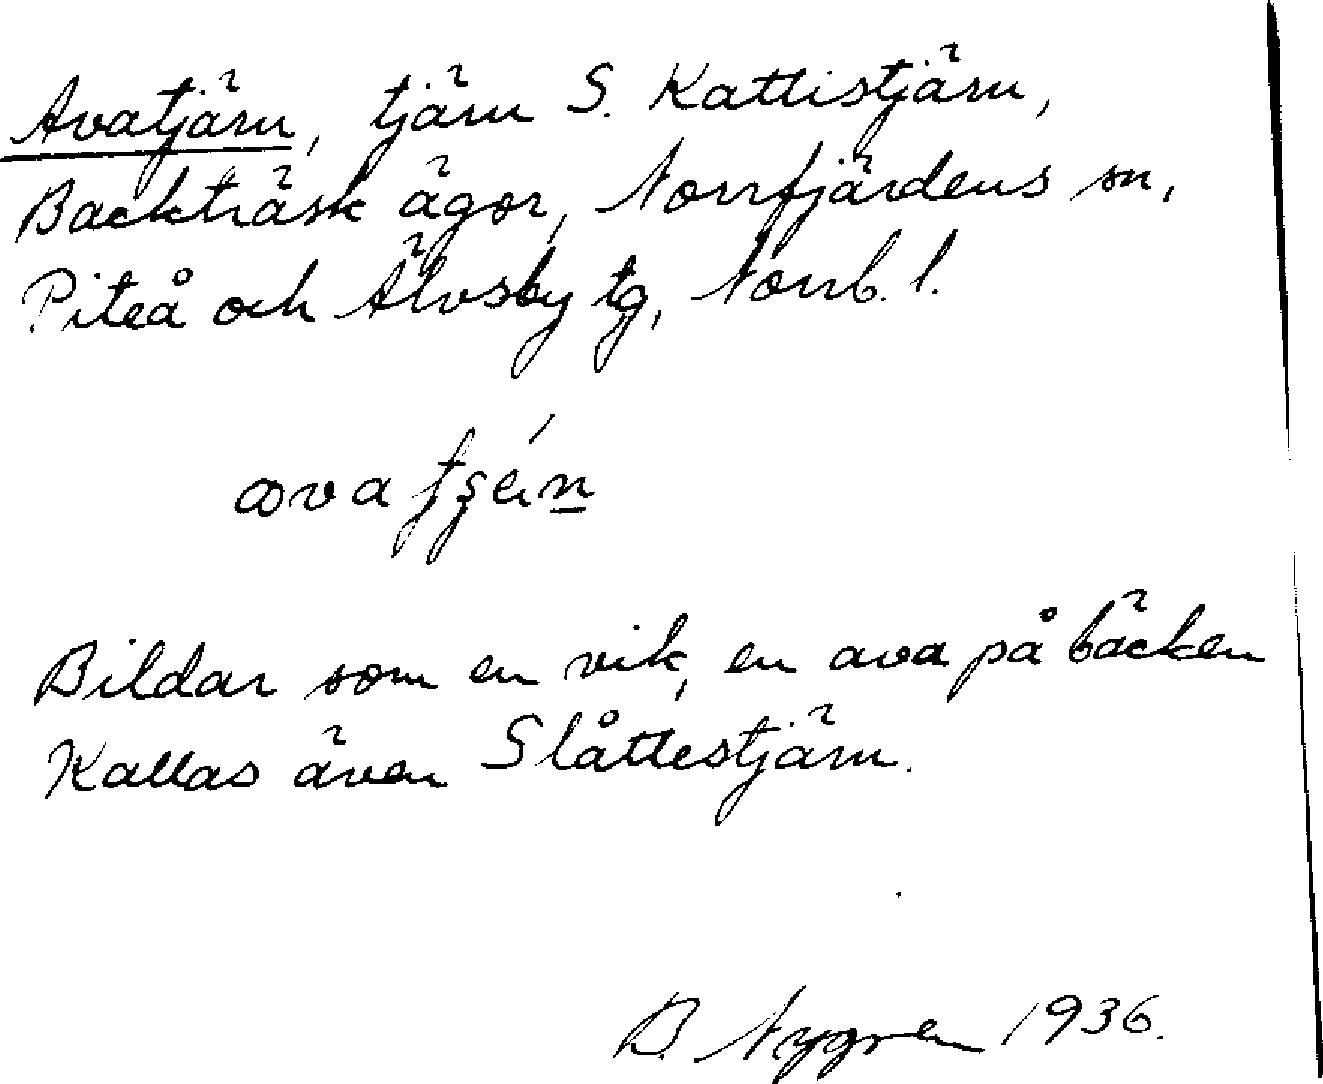 Avatjärn, tjärn S. Kattistjärn,
Backträsk ägor, Norrfjärdens sn,
Piteå och Älvsby tg, Norrb. l.
Bildar som en vik, en ava på bäcken
Kallas även Slåttestjärn.
B. Nygren 1936.